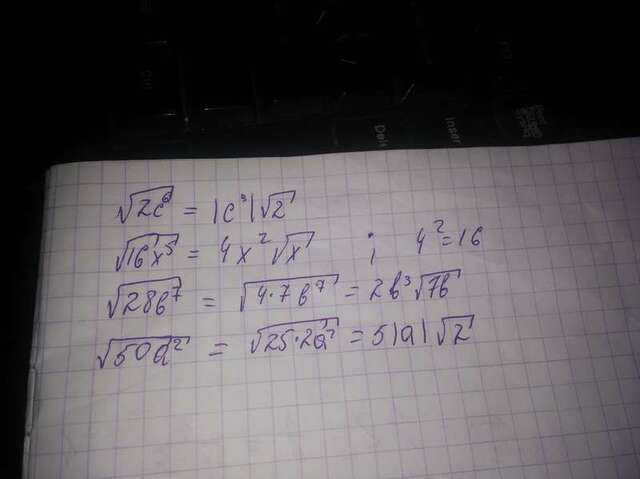 Dele
Inser
√2c⁶ = |c³|√2
√16x⁵ = 4x²√x ; 4² = 16
√28b⁷ = √4·7b⁷ = 2b³√7b
√50a² = √25·2a² = 5|a|√2